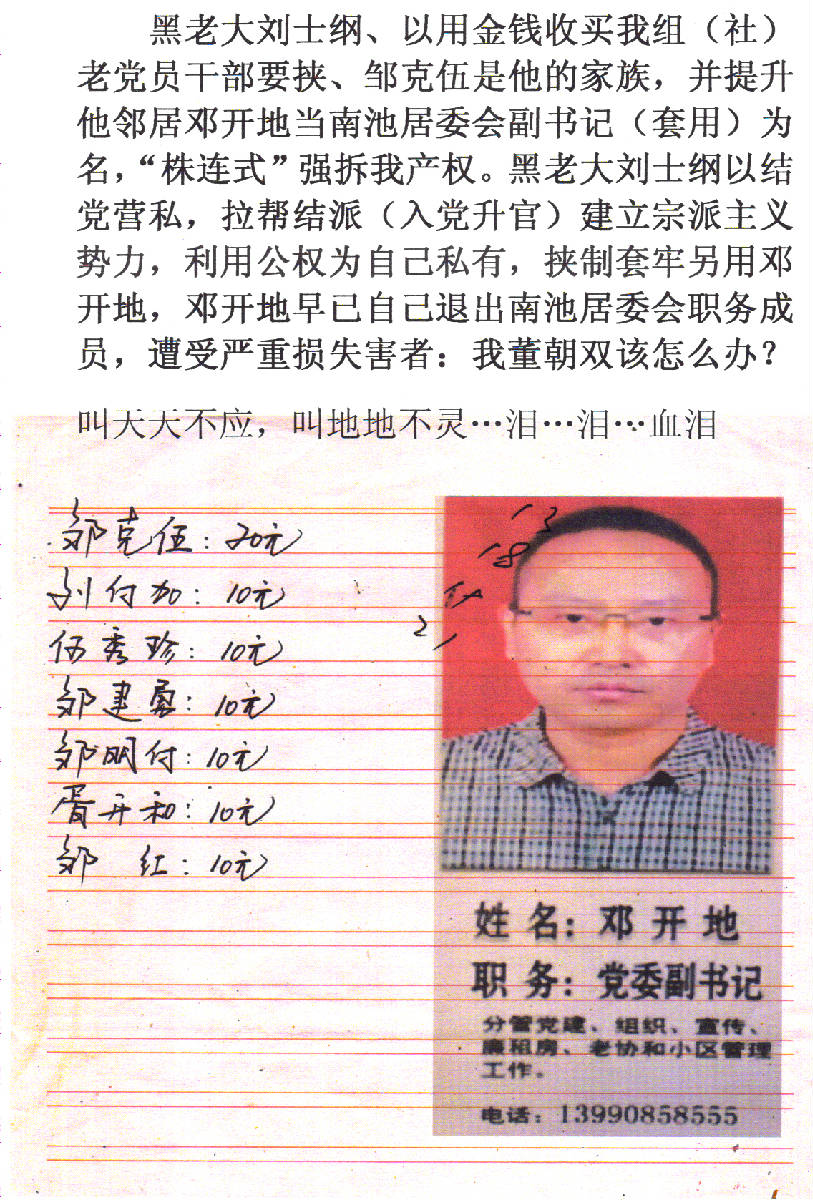 黑老大刘士纲、以用金钱收买我组（社）
老党员干部要挟、邹克伍是他的家族，并提升
他邻居邓开地当南池居委会副书记（套用）为
名，“株连式”强拆我产权。黑老大刘士纲以结
党营私，拉帮结派（入党升官）建立宗派主义
势力，利用公权为自己私有，挟制套牢另用邓
开地，邓开地早已自己退出南池居委会职务成
员，遭受严重损失害者：我董朝双该怎么办？
叫天天不应，叫地地不灵…泪…泪…血泪
邹克伍：20元
刘付加：10元
伍秀珍：10元
邹建勇：10元
邹明付：10元
胥开和：10元
邹 红：10元
13
18
2
姓名：邓开地
职务：党委副书记
分管党建、组织、宣传、
廉租房、老协和小区管理
工作。
电话：13990858555